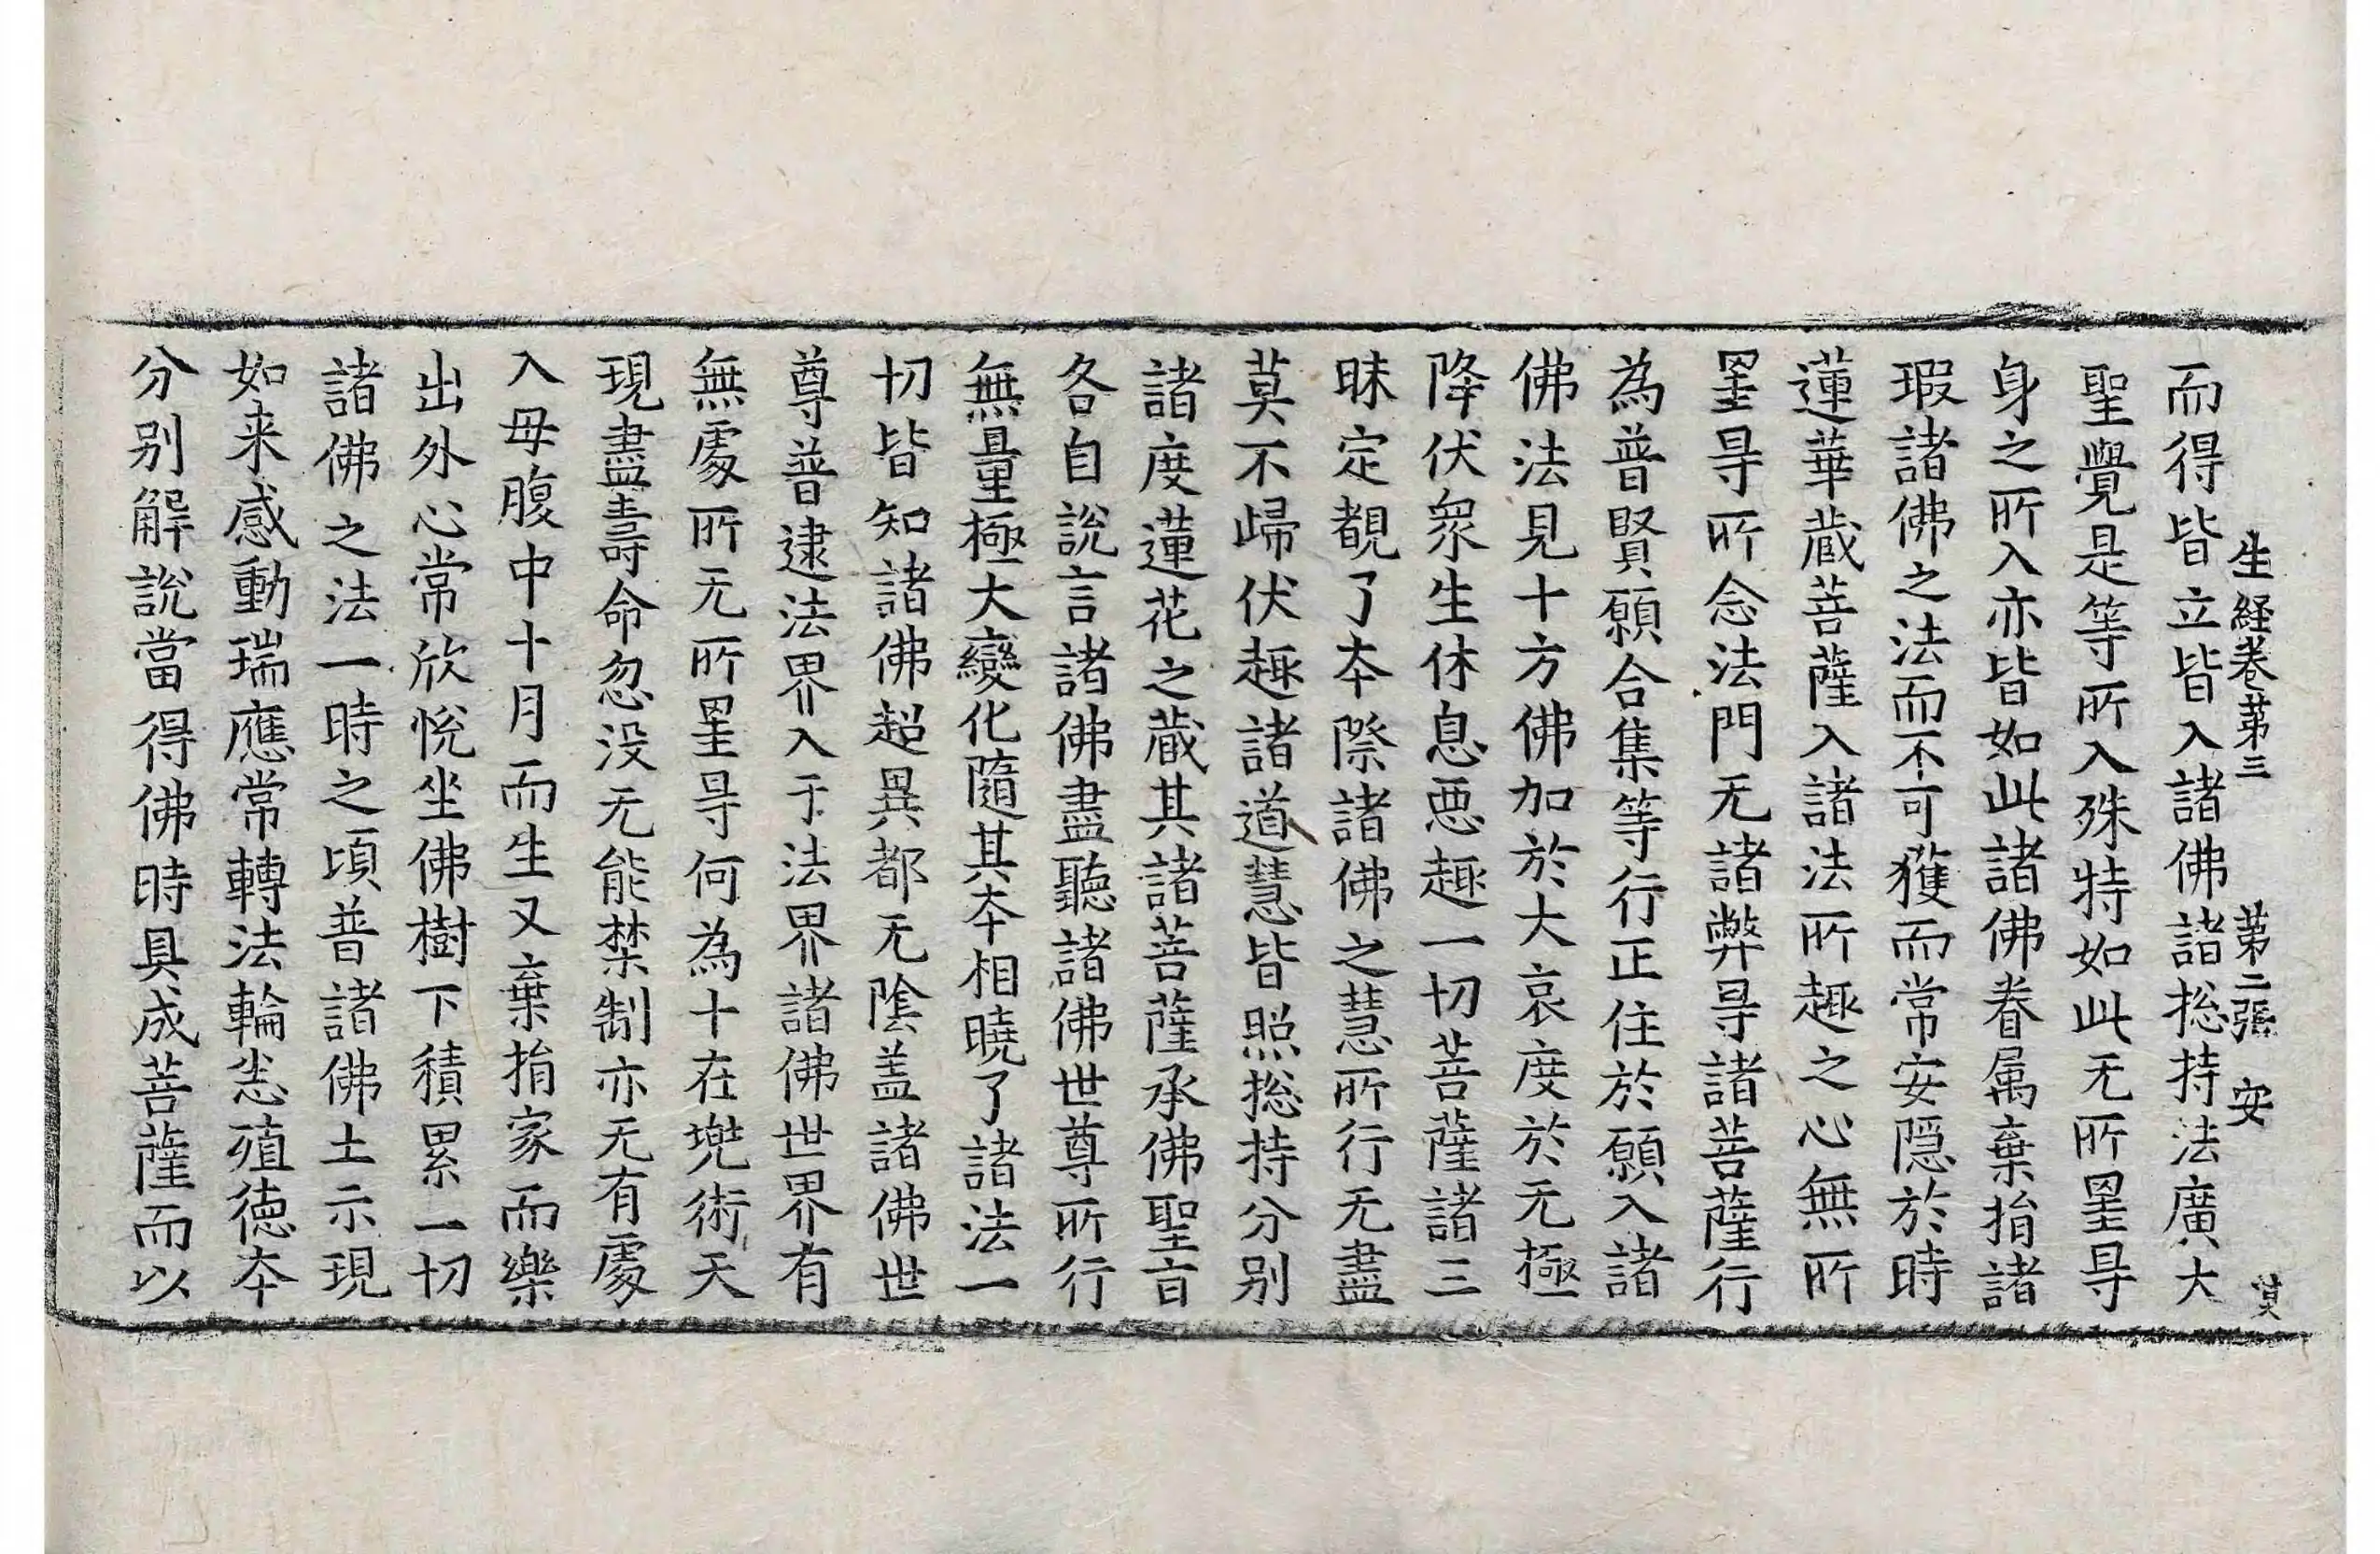 生経卷第三 第二張 安 莫
而得皆立皆入諸佛諸捴持法廣大
聖覺是等所入殊特如此无所罣㝵
身之所入亦皆如此諸佛眷属棄捐諸
瑕諸佛之法而不可獲而常安隱於時
蓮華蔵菩薩入諸法所趣之心無所
罣㝵所念法門无諸弊㝵諸菩薩行
為普賢願合集等行正住於願入諸
佛法見十方佛加於大哀度於无極
降伏衆生休息惡趣一切菩薩諸三
昧定覩了夲際諸佛之慧所行无盡
莫不歸伏趣諸道慧皆照捴持分别
諸度蓮花之蔵其諸菩薩承佛聖旨
各自說言諸佛盡聽諸佛世尊所行
無量極大變化隨其夲相曉了諸法一
切皆知諸佛超異都无陰盖諸佛世
尊普逮法界入于法界諸佛世界有
無處所无所罣㝵何為十在兠術天
現盡壽命忽没无能禁制亦无有處
入母腹中十月而生又棄捐家而樂
出外心常欣悅坐佛樹下積累一切
諸佛之法一時之頃普諸佛土示現
如来感動瑞應常轉法輪恣殖徳夲
分别解說當得佛時具成菩薩而以